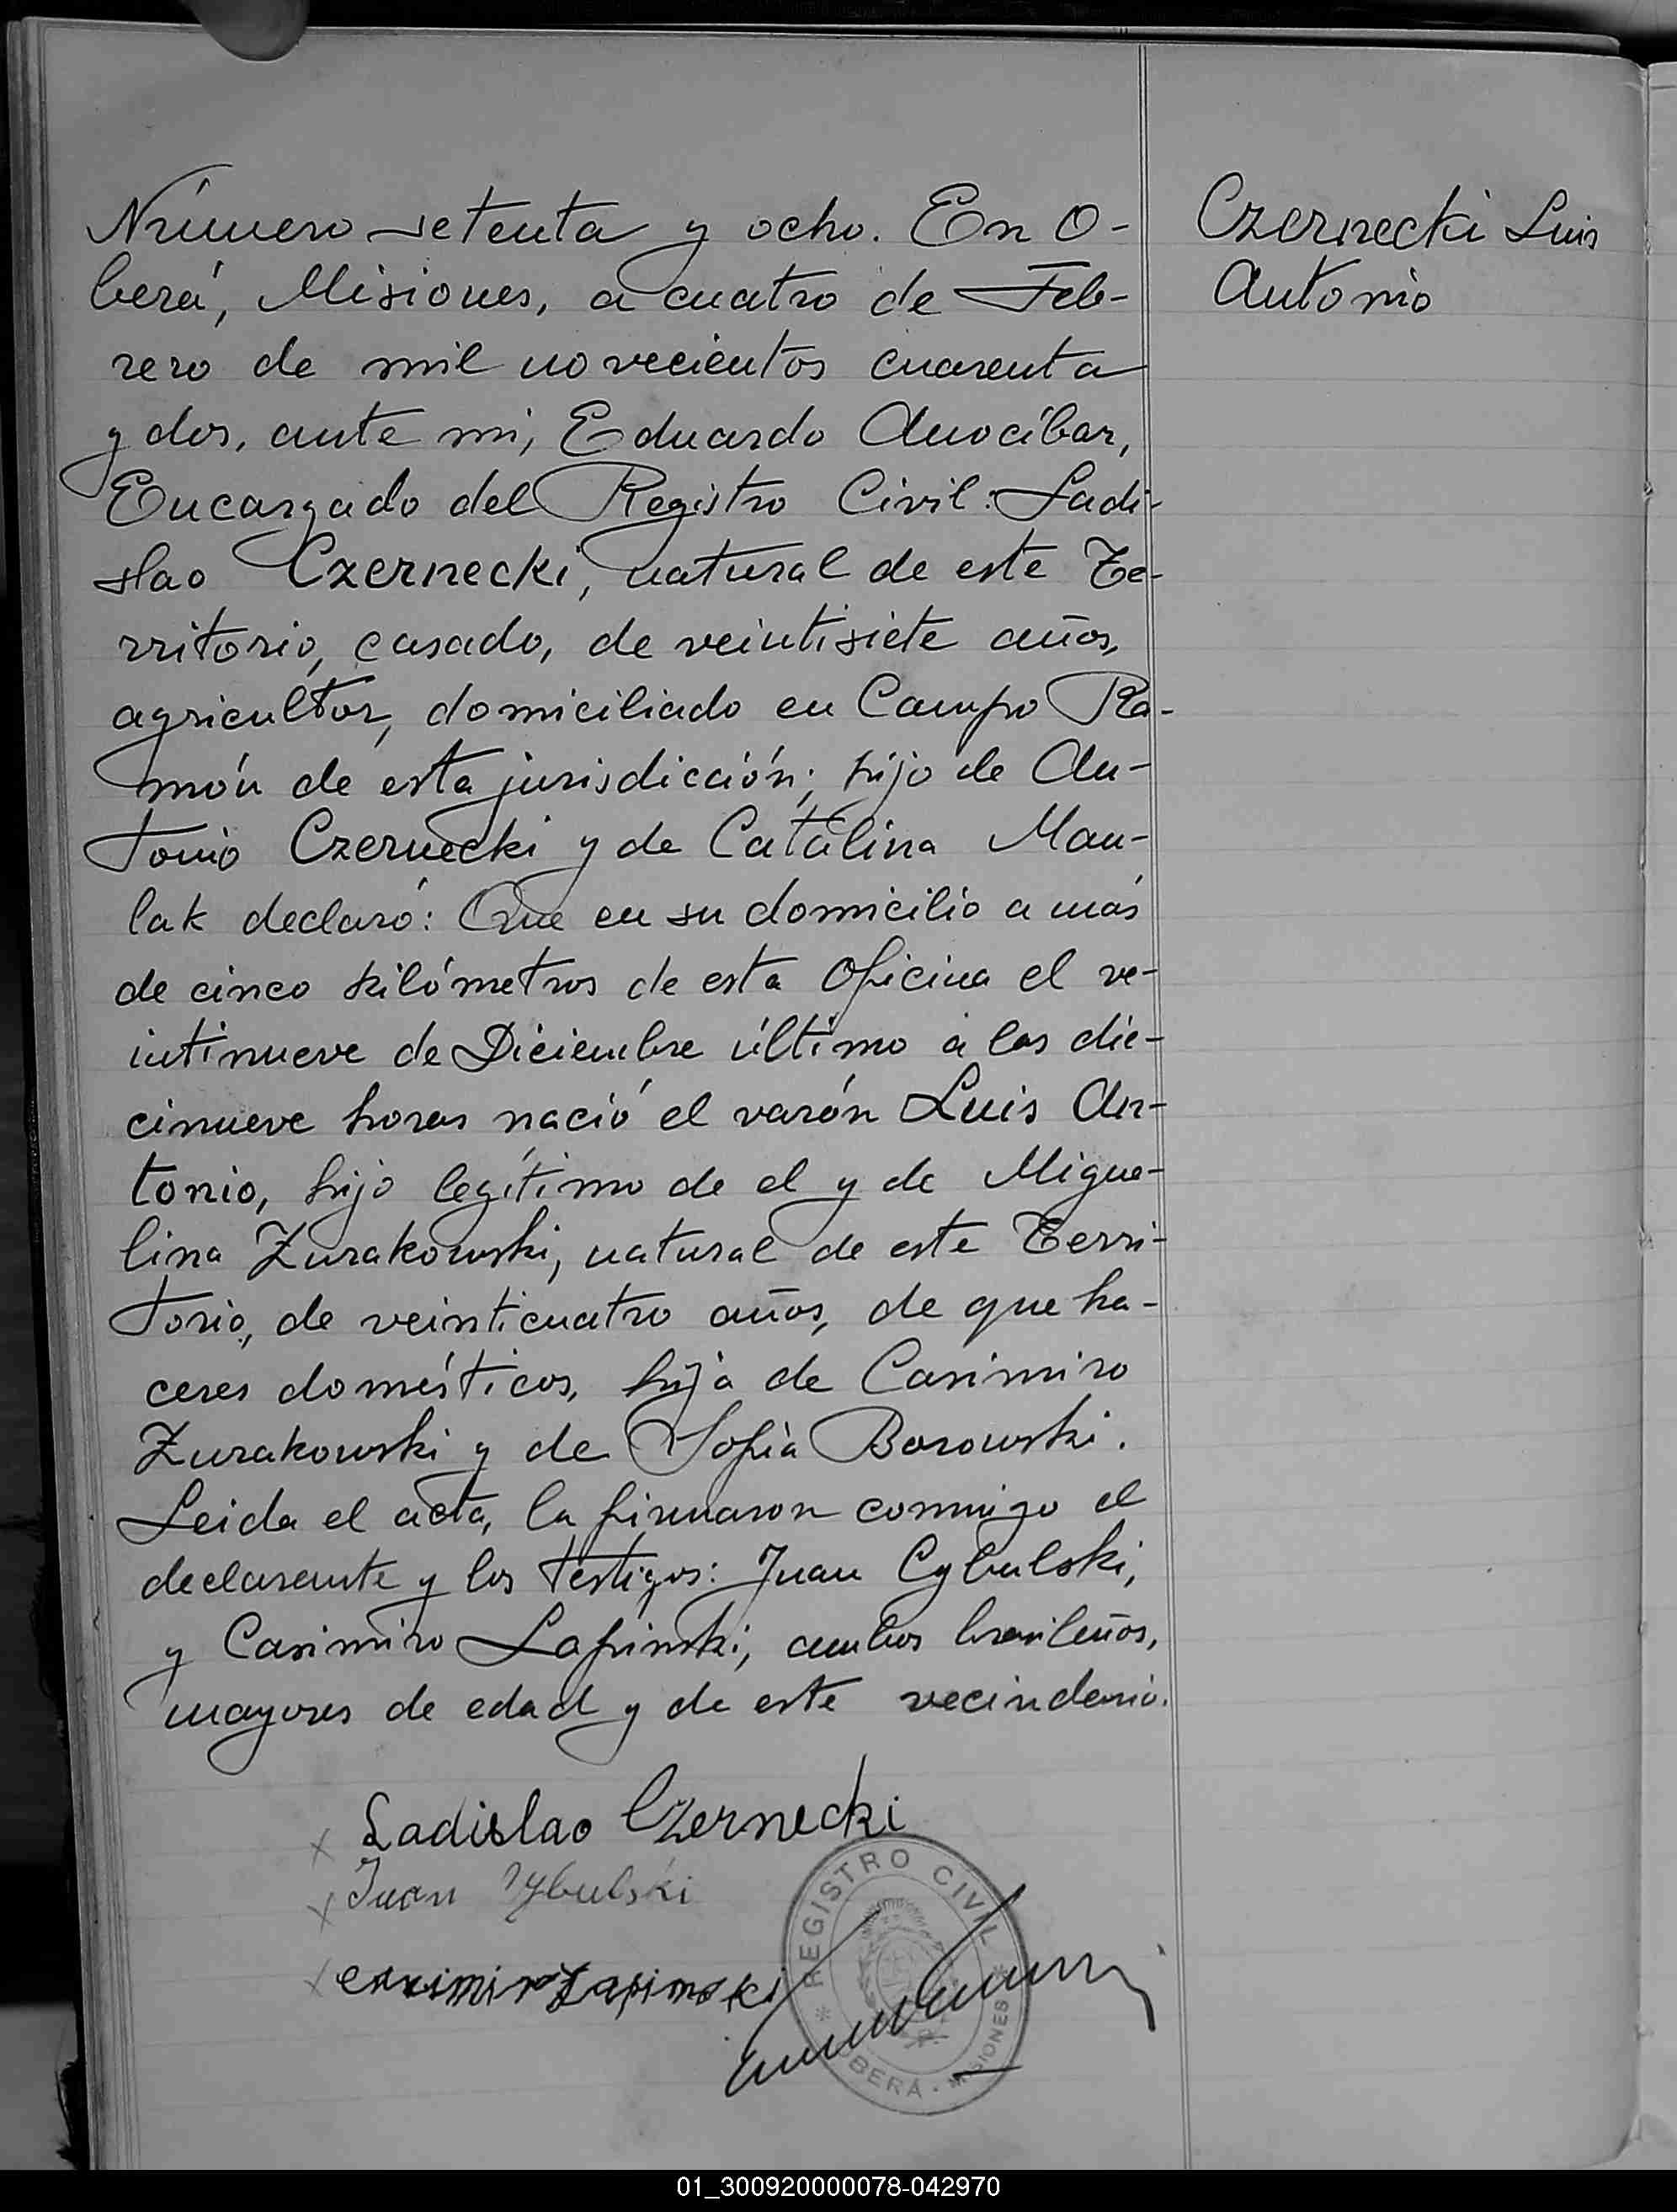 Número setenta y ocho. En O-
berá, Misiones, a cuatro de Feb-
rero de mil novecientos cuarenta
y dos, ante mi, Eduardo Anocíbar,
Encargado del Registro Civil: Ladi-
slao Czernecki, natural de este Te-
rritorio, casado, de veintisiete años,
agricultor, domiciliado en Campo Ra-
món de esta jurisdicción; hijo de An-
tonio Czernecki y de Catalina Man-
lak declaró: Que en su domicilio a más
de cinco kilómetros de esta Oficina el ve-
intinueve de Diciembre último a las die-
cinueve horas nació el varón Luis An-
tonio, hijo legítimo de el y de Migue-
lina Zurakowski, natural de este Terri-
torio, de veinticuatro años, de que ha-
ceres domésticos, hija de Casimiro
Zurakowski y de Sofia Borowski.
Leida el acta, la firmaron conmigo el
declarante y los testigos: Juan Cybulski,
y Casimiro Lapinski, ambos brasileños,
mayores de edad y de este vecindario.
Czernecki Luis
Antonio
x Ladislao Czernecki
x Juan Cybulski
x Casimiro Lapinski
REGISTRO CIVIL
* OBERÁ - MISIONES *
01_300920000078-042970